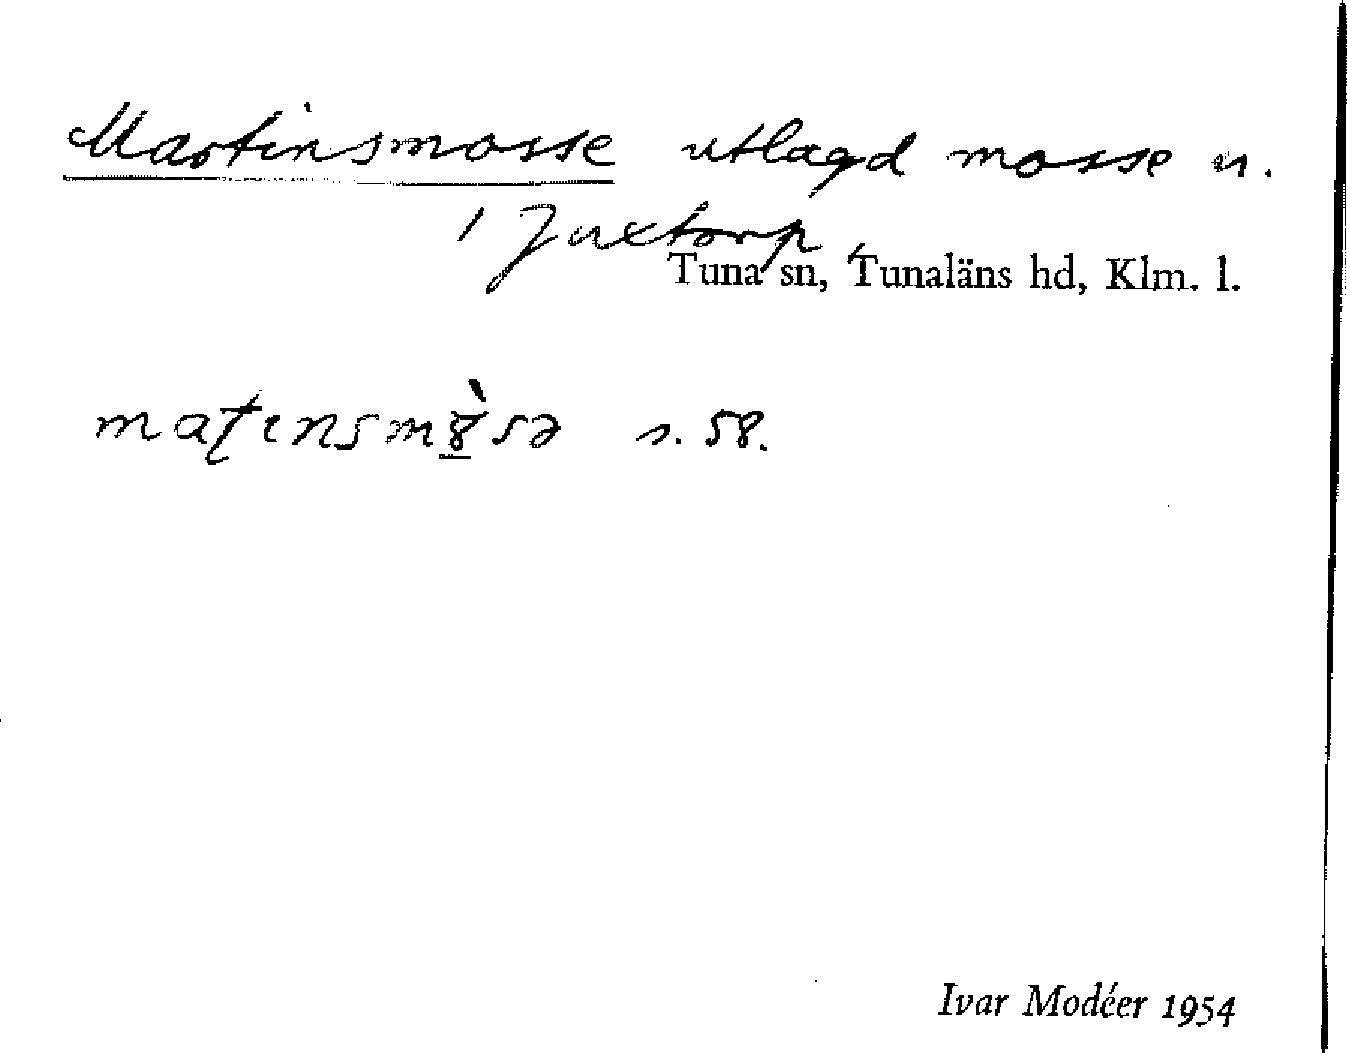 Martinsmosse utlagd mosse u.
/ Juxtorp,
Tuna sn, Tunaläns hd, Klm. l.
maʈensm8̱̀sə s. 58.
Ivar Modéer 1954